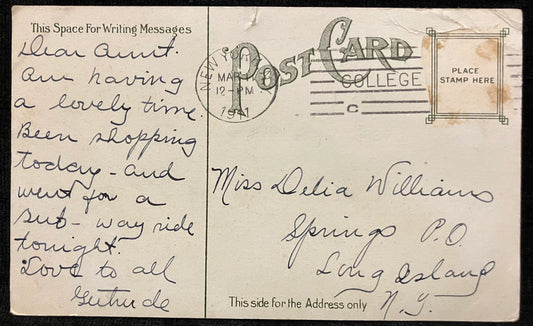 This Space For Writing Messages
Dear Aunt.
Am having
a lovely time.
Been shopping
today - and
went for a
sub-way ride
tonight.
Love to all
Gertrude
POST CARD
NEW YORK
MAR
12-PM
1911
COLLEGE
C
PLACE
STAMP HERE
Miss Delia Williams
Springs P.O.
Long Island
N.Y.
This side for the Address only